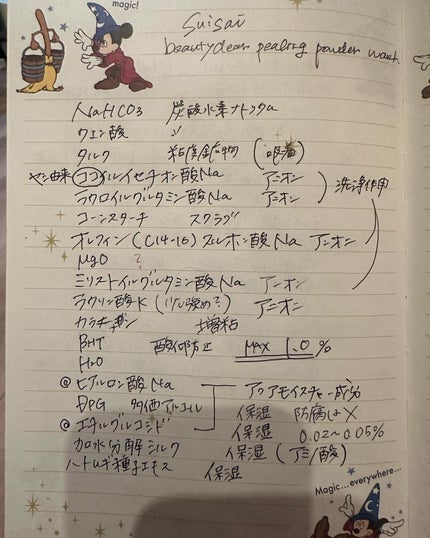 magic!
Suisai
beautyclear pealing powder wash
NaHCO3 炭酸水素ナトリウム
クエン酸 〃
タルク 粘度鉱物 (吸着)
ヤシ由来 ココイルイセチオン酸Na アニオン
ラウロイルグルタミン酸Na アニオン 洗浄作用
コーンスターチ スクラブ
オレフィン(C14-16)スルホン酸Na アニオン
MgO ?
ミリストイルグルタミン酸Na アニオン
ラウリン酸K (少し強め?) アニオン
カラギーナン 増粘
BHT 酸化防止 MAX 1.0%
H2O
@ヒアルロン酸Na アクアモイスチャー成分
DPG 多価アルコール 保湿 防腐は×
@エチルグルコシド 保湿 0.02~0.05%
加水分解シルク 保湿 (アミノ酸)
ハトムギ種子エキス 保湿
Magic...everywhere...